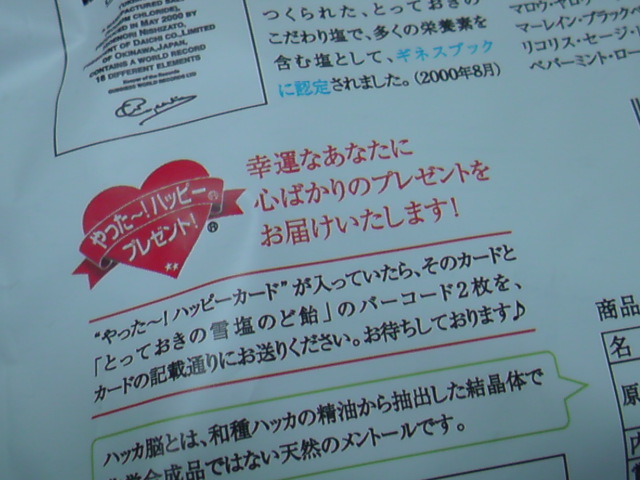 CHLORIDES.
IN MAY 2000 BY
NISHIZATO,
OF DAICHI CO.,LIMITED
OF OKINAWA,JAPAN,
CONTAINS A WORLD RECORD
18 DIFFERENT ELEMENTS
つくられた、とっておきの
こだわり塩で、多くの栄養素を
含む塩として、ギネスブック
に認定されました。(2000年8月)
マロウ・ヤロウ
マーレイン・ブラック
リコリス・セージ・
ペパーミント・ロー
やった~!ハッピー®
プレゼント!
®
幸運なあなたに
心ばかりのプレゼントを
お届けいたします!
“やった~!ハッピーカード”が入っていたら、そのカードと
「とっておきの雪塩のど飴」のバーコード2枚を、
カードの記載通りにお送りください。お待ちしております♪
ハッカ脳とは、和種ハッカの精油から抽出した結晶体で
合成品ではない天然のメントールです。
商品
名
原
内